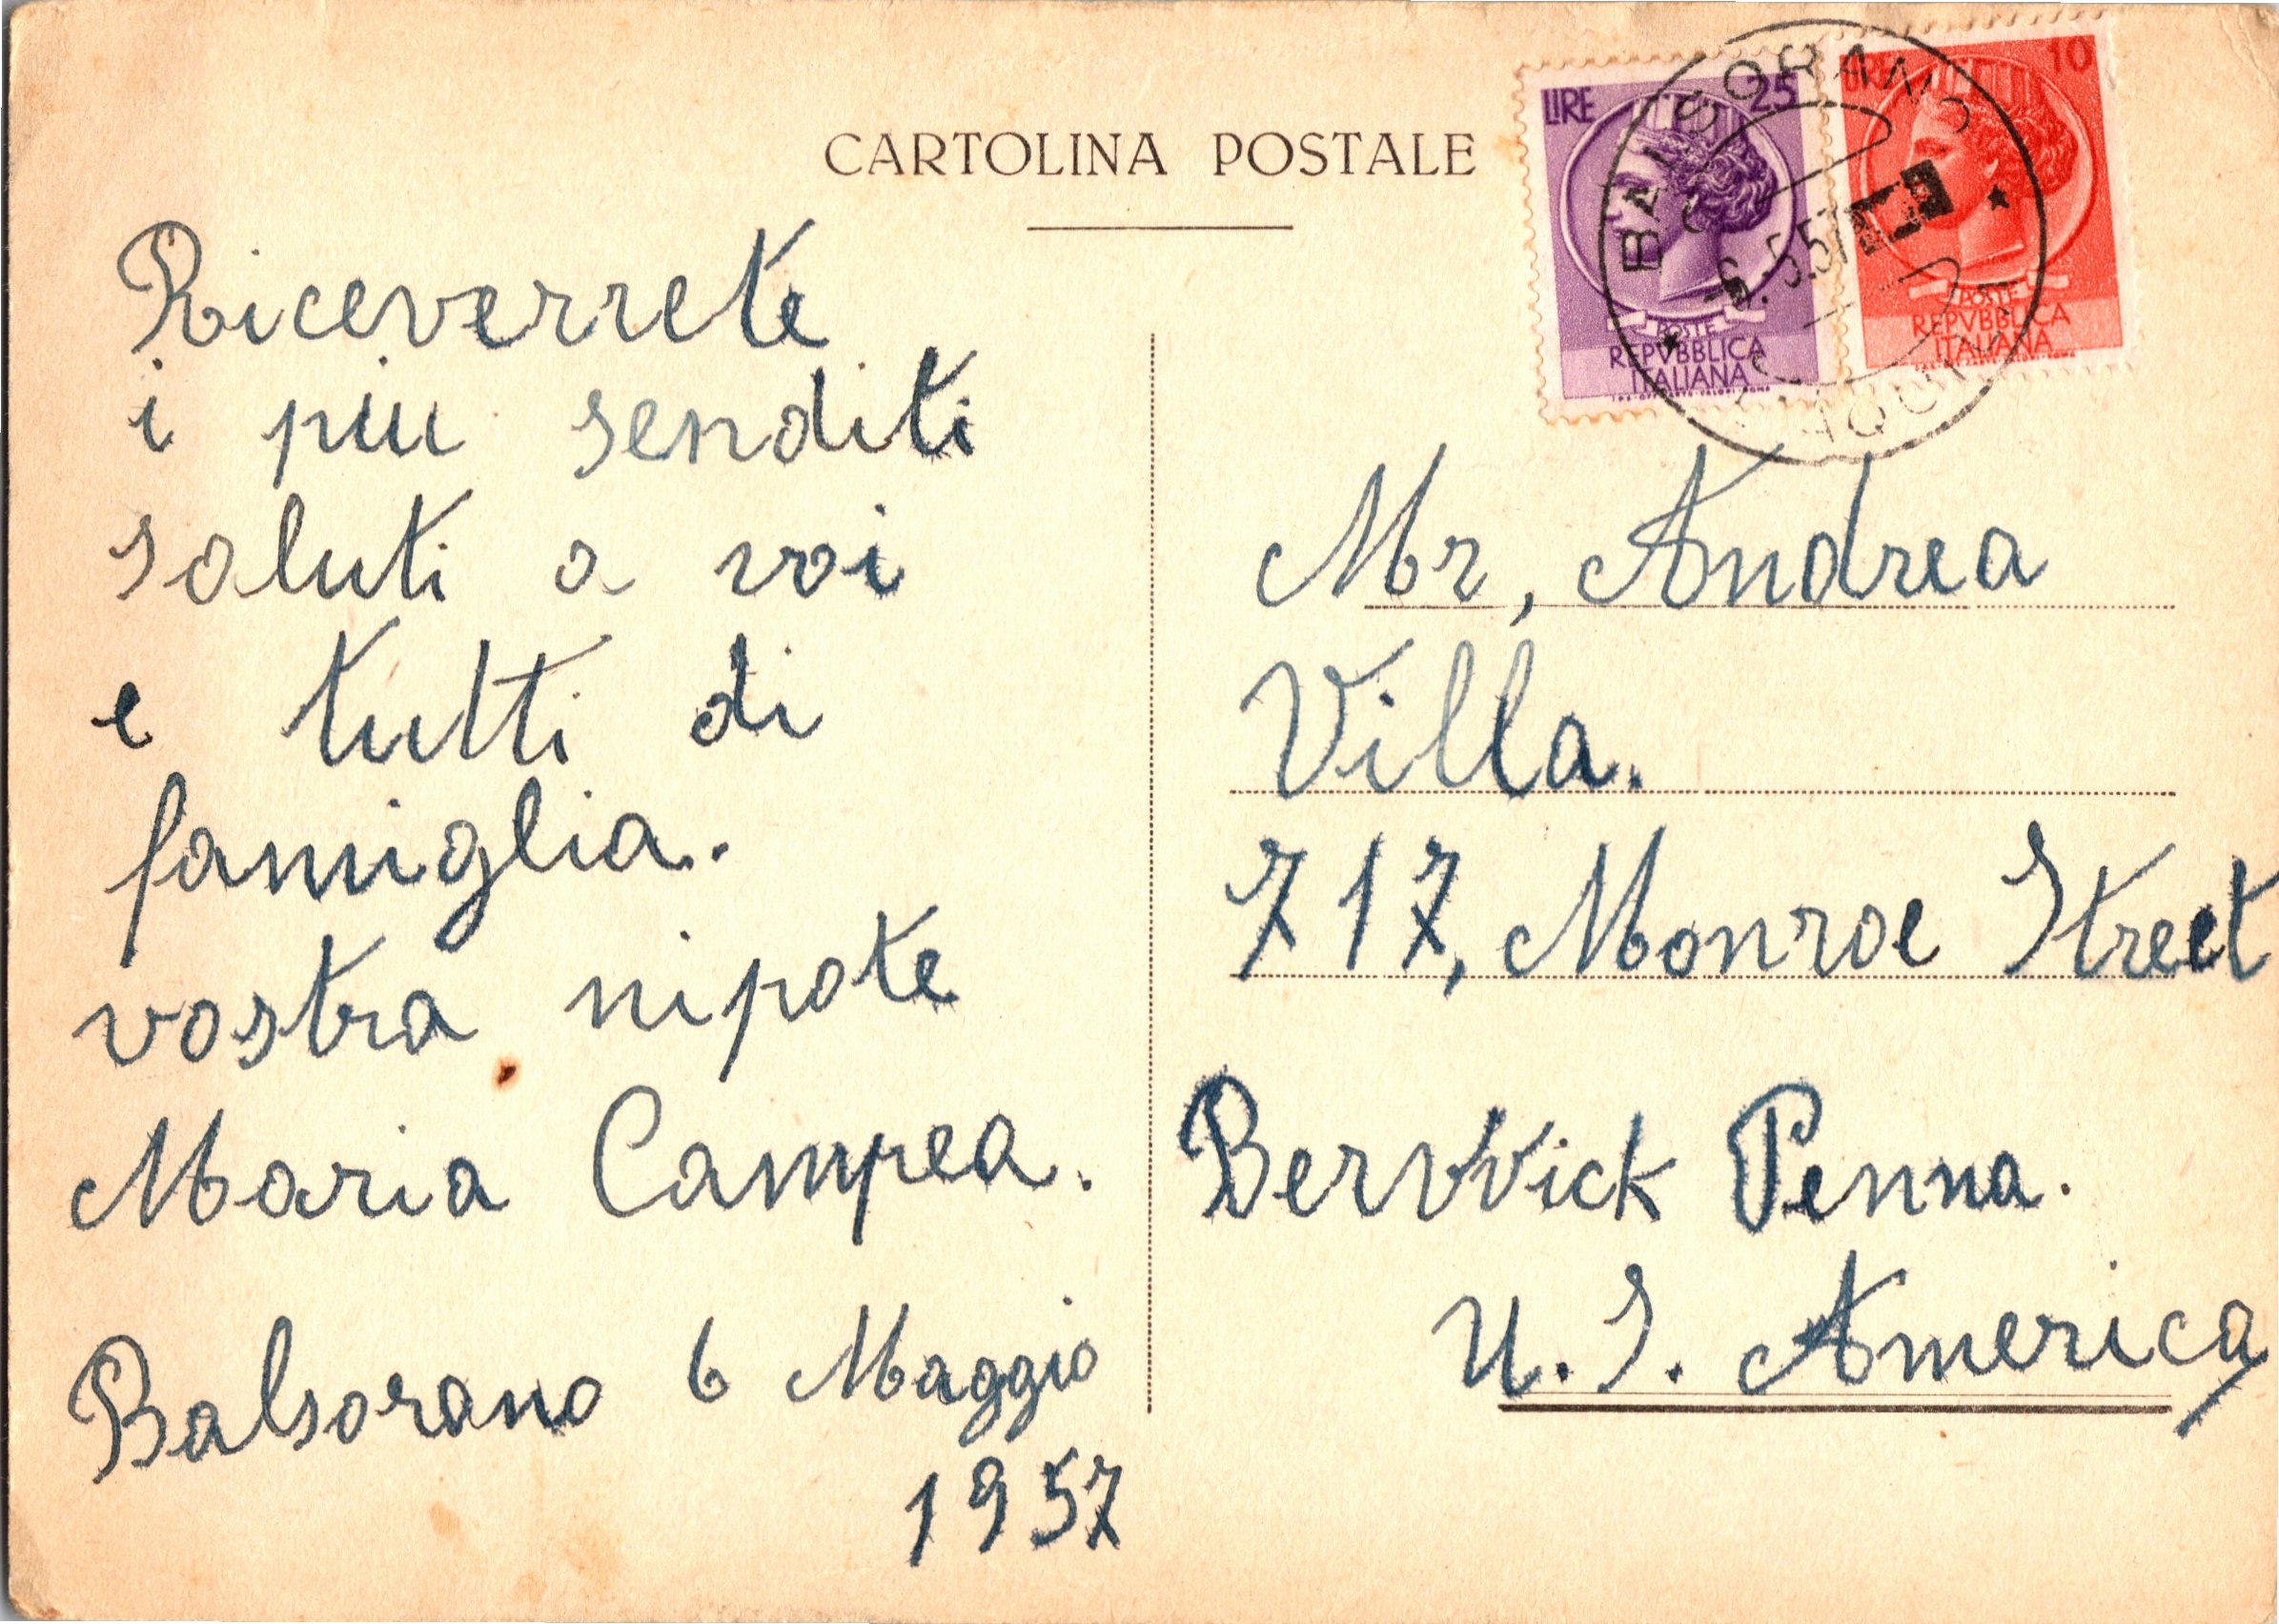 CARTOLINA POSTALE
Riceverrete
i piu senditi
saluti a voi
e tutti di
famiglia.
vostra nipote
Maria Campea.
Balsorano 6 Maggio
1957
LIRE 25
POSTE
REPVBBLICA
ITALIANA
IST. POL. STATO-VALORI-ROMA
LIRE 10
POSTE
REPVBBLICA
ITALIANA
BALSORANO
6.5.57
Mr, Andrea
Villa.
717, Monroe Street
BerVVick Penna.
U. S. America